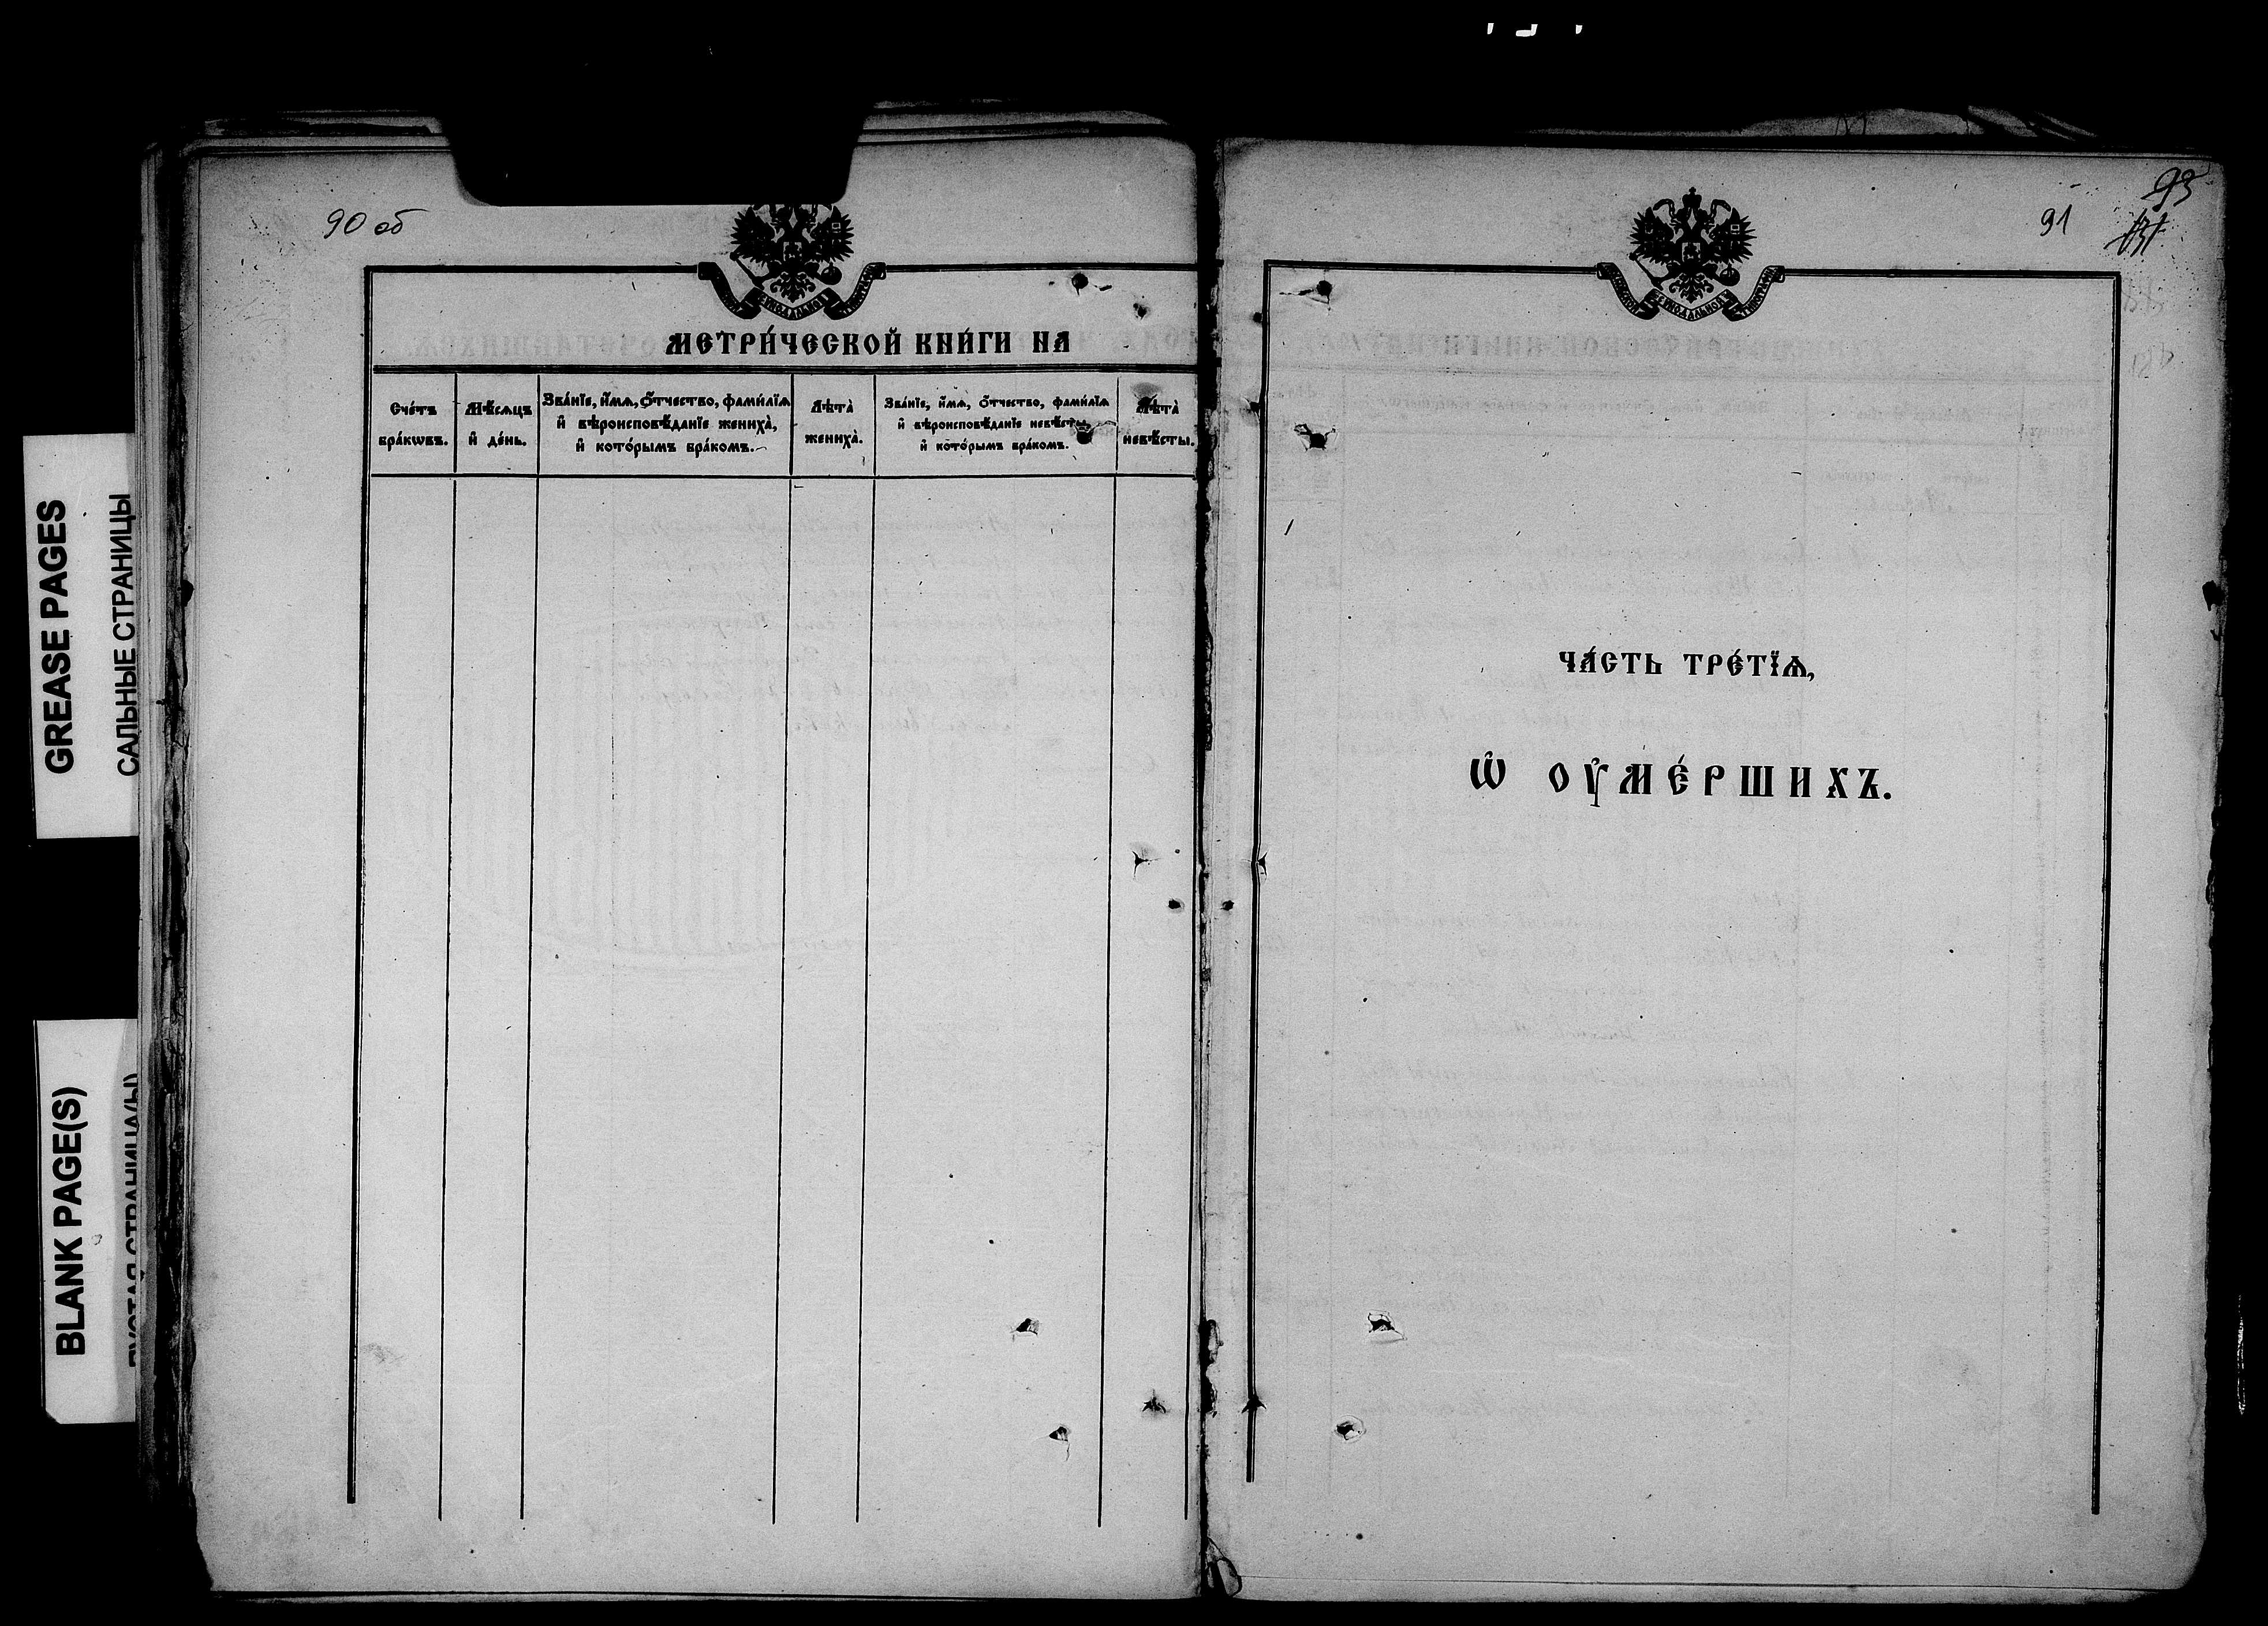 GREASE PAGES
САЛЬНЫЕ СТРАНИЦЫ
BLANK PAGE(S)
90 об
МЕТРИ́ЧЕСКОЙ КНИ́ГИ НА
Сче́тъ бра́кѡвъ.
Мѣ́сѧцъ и҆ де́нь.
Зва́нїе, и҆́мѧ, ѻ҆́тчество, фами́лїѧ
и҆ вѣроисповѣ́данїе жениха̀,
и҆ кото́рымъ бра́комъ.
Лѣта̀ жениха̀.
Зва́нїе, и҆́мѧ, ѻ҆́тчество, фами́лїѧ
и҆ вѣроисповѣ́данїе невѣ́сты,
и҆ кото́рымъ бра́комъ.
Лѣта̀ невѣ́сты.
93
91
СѴНОДАЛЬНОЙ
ЧА́СТЬ ТРЕ́ТЇѦ,
Ѡ҆ ОУ҆МЕ́РШИХЪ.